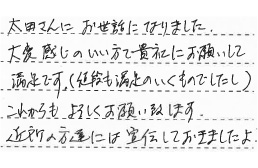 太田さんに お世話になりました.
大変感じのいい方で貴社にお願いして
満足です。(値段も満足のいくものでしたし)
これからも よろしくお願い致します.
近所の方達には宣伝しておきましたよ